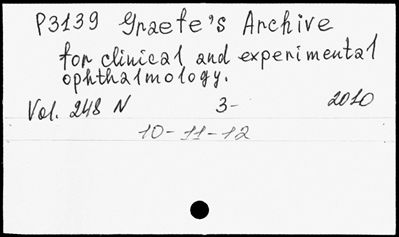 P3139 Graefe's Archive
for clinical and experimental
ophthalmology.
Vol. 248 N 3- 2010
10-11-12